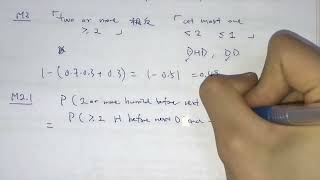 M2 「two or more 相反 「at most one
≥ 2 」 ≤ 2 ≤ 1 」
DHD, DD
1 - (0.7·0.3 + 0.3) = 1 - 0.51 =
M2.1 P ( 2 or more humid before next
= P ( ≥ 2 H before next D